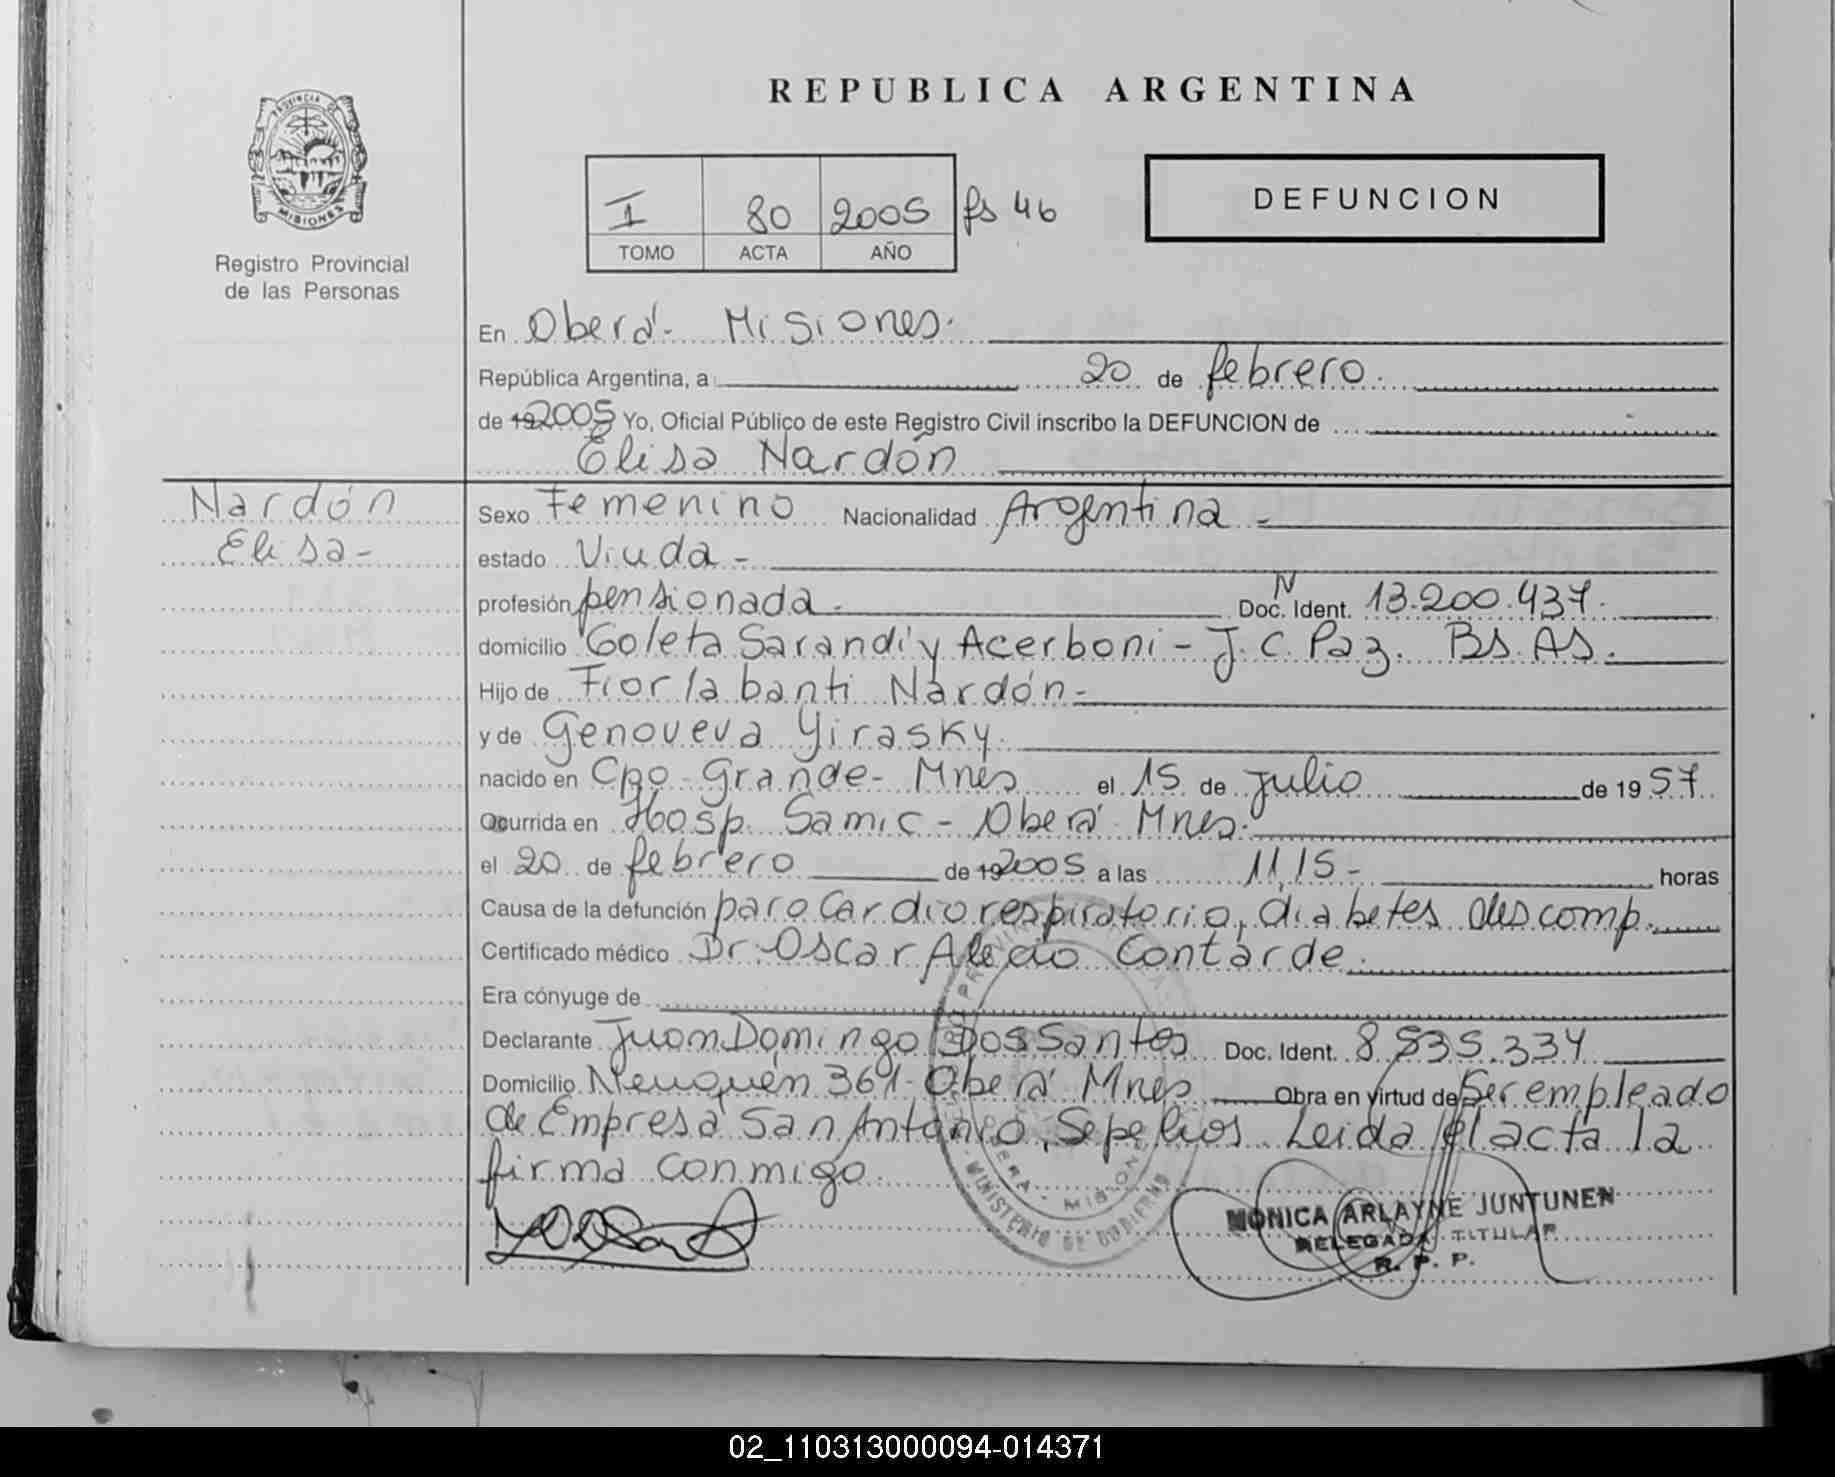 REPUBLICA ARGENTINA
PROVINCIA DE
MISIONES
Registro Provincial
de las Personas
I 80 2005 fs 46
TOMO ACTA AÑO
DEFUNCION
En Oberá - Misiones.
República Argentina, a 20 de febrero.
de 19 2005 Yo, Oficial Público de este Registro Civil inscribo la DEFUNCION de
Elisa Nardón
Nardón
Elisa -
Sexo Femenino Nacionalidad Argentina -
estado Viuda -
profesión pensionada. Doc. Ident. N 13.200.437.
domicilio Goleta Sarandí y Acerboni - J. C. Paz. Bs. As.
Hijo de Fiorlabanti Nardón -
y de Genoveva Yirasky.
nacido en Cpo - Grande - Mnes el 15 de julio de 19 57
Ocurrida en Hosp. Samic - Oberá Mnes.
el 20 de febrero de 19 2005 a las 11,15 - horas
Causa de la defunción paro cardio respiratorio, diabetes descomp.
Certificado médico Dr. Oscar Alecio Contarde.
Era cónyuge de
Declarante Juan Domingo Dos Santos Doc. Ident. 8.535.334
Domicilio Neuquén 361 - Oberá Mnes Obra en virtud de Ser empleado
de Empresa San Antonio, Sepelios. Leida el acta la
firma conmigo.
MINISTERIO DE GOBIERNO
OBERA - MISIONES
MONICA ARLAYNE JUNTUNEN
DELEGADA TITULAR
R. P. P.
02_110313000094-014371